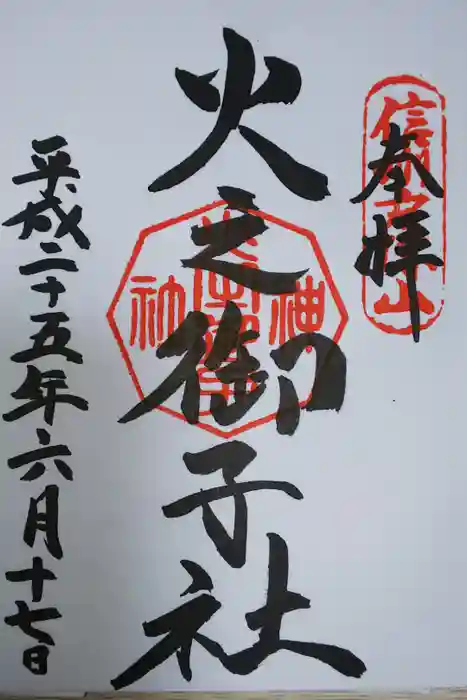 奉拝
信州戸隠山
火之御子社
平成二十五年六月十七日